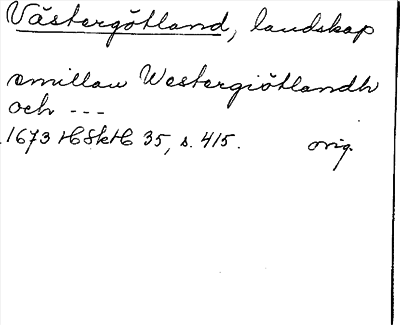 Västergötland, landskap
emillan Westergiötlandh
och ---
1673 HSkH 35, s. 415. orig.